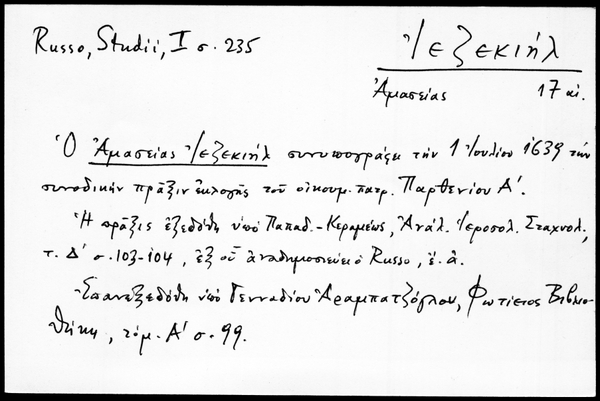 Russo, Studii, I σ. 235
Ἰεζεκιήλ
Ἀμασείας 17 αἰ.
Ὁ Ἀμασείας Ἰεζεκιήλ συνυπογράφει τήν 1 Ἰουλίου 1639 τήν
συνοδικήν πρᾶξιν ἐκλογῆς τοῦ οἰκουμ. πατρ. Παρθενίου Α'.
Ἡ πρᾶξις ἐξεδόθη ὑπό Παπαδ.-Κεραμέως, Ἀνάλ. Ἱεροσολ. Σταχυολ.,
τ. Δ' σ. 103-104, ἐξ οὗ ἀναδημοσιεύει ὁ Russo, ἔ. ἀ.
Ἐπανεξεδόθη ὑπό Γενναδίου Ἀραμπατζόγλου, Φωτίειος Βιβλιο-
θήκη, τόμ. Α' σ. 99.